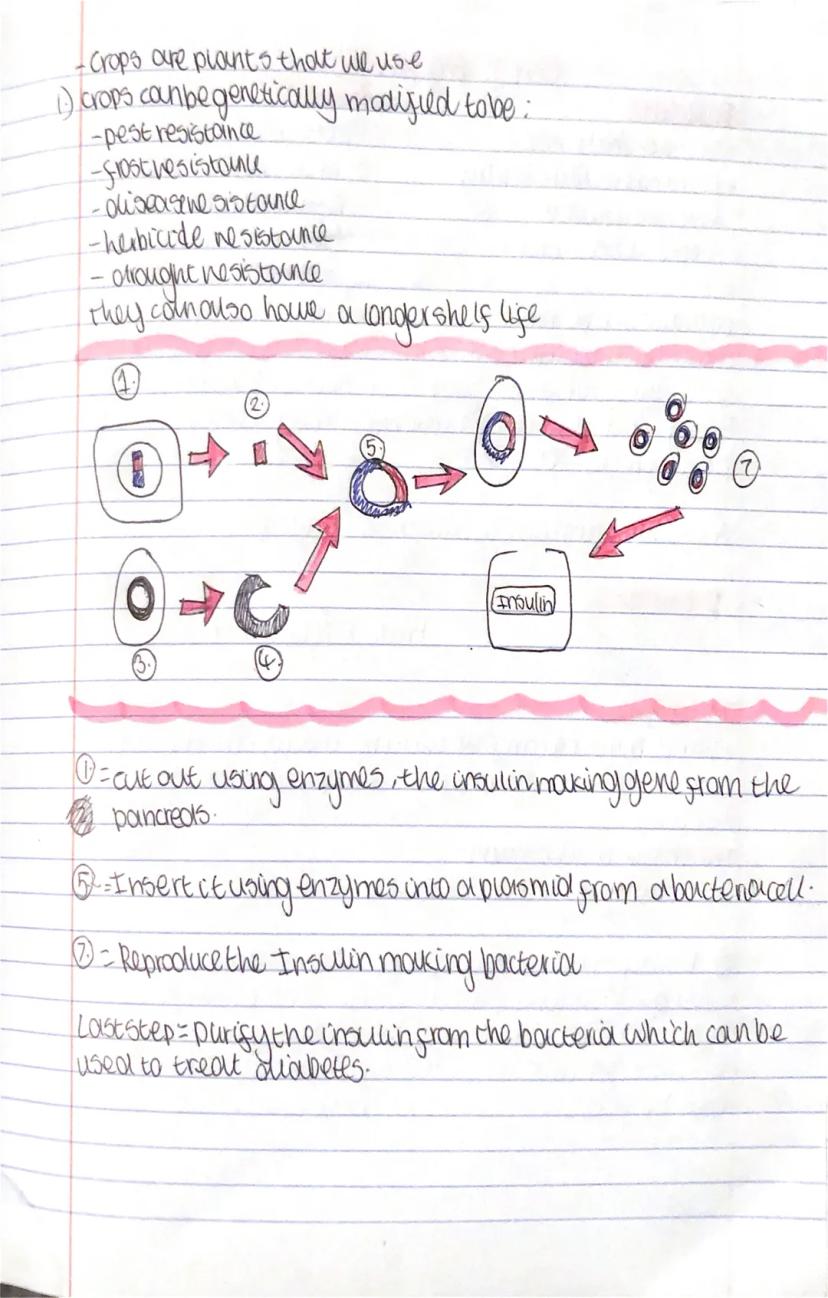 - crops are plants that we use
1.) crops can be genetically modified to be :
- pest resistance
- frost resistance
- disease resistance
- herbicide resistance
- drought resistance
they can also have a longer shelf life
1.
2.
5.
7
Insulin
3.
4.
1 = cut out using enzymes, the insulin making gene from the
pancreas.
5 = Insert it using enzymes into a plasmid from a bacteria cell.
7 = Reproduce the Insulin making bacteria
Last step = purify the insulin from the bacteria which can be
used to treat diabetes.